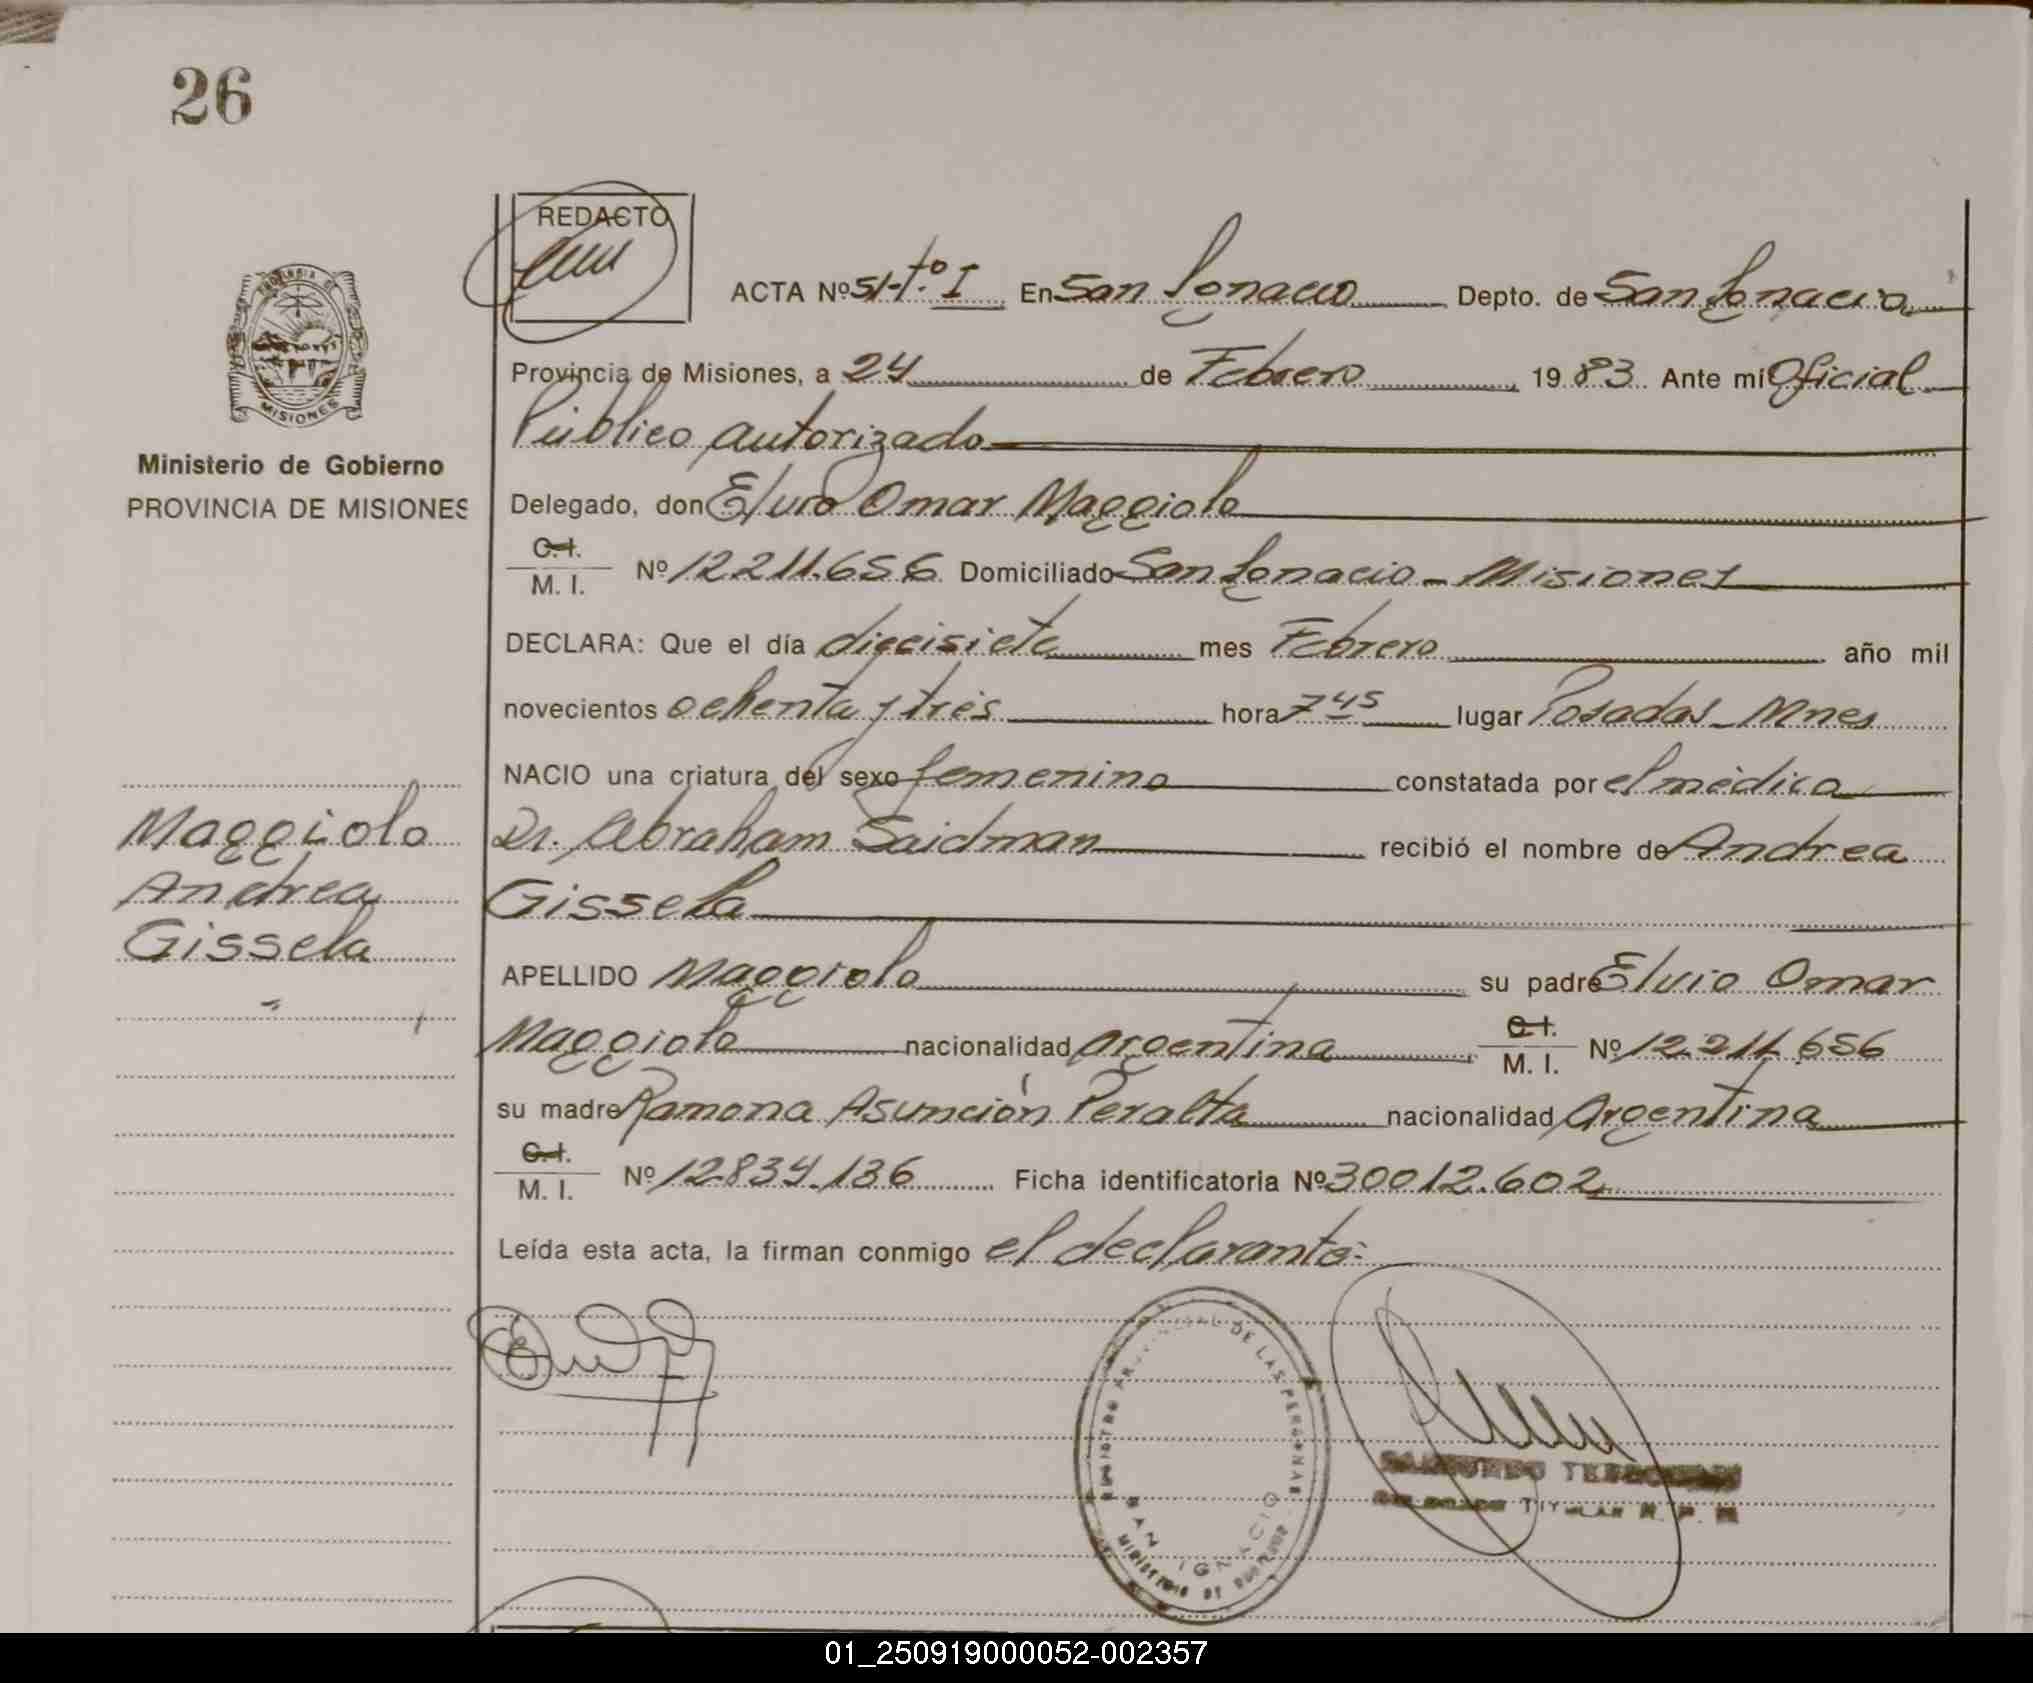 26
REDACTO
ACTA Nº 51-tº I En San Ignacio Depto. de San Ignacio
Provincia de Misiones, a 24 de Febrero 1983 Ante mi Oficial
Público autorizado
Ministerio de Gobierno
PROVINCIA DE MISIONES
MISIONES
Delegado, don Elvio Omar Maggiolo
C. I.
M. I. Nº 12.211.656 Domiciliado San Ignacio - Misiones
DECLARA: Que el día diecisiete mes Febrero año mil
novecientos ochenta y tres hora 7 45 lugar Posadas - Mnes
NACIO una criatura del sexo femenino constatada por el médico
Maggiolo
Andrea
Gissela
Dr. Abraham Saidman recibió el nombre de Andrea
Gissela
APELLIDO Maggiolo su padre Elvio Omar
Maggiolo nacionalidad argentina C. I. M. I. Nº 12.211.656
su madre Ramona Asunción Peralta nacionalidad Argentina
C. I.
M. I. Nº 12.834.136 Ficha identificatoria Nº 30012.602
Leída esta acta, la firman conmigo el declarante.
DE LAS PERSONAS
SAN IGNACIO
MINISTERIO DE
TITULAR R. P.
01_250919000052-002357